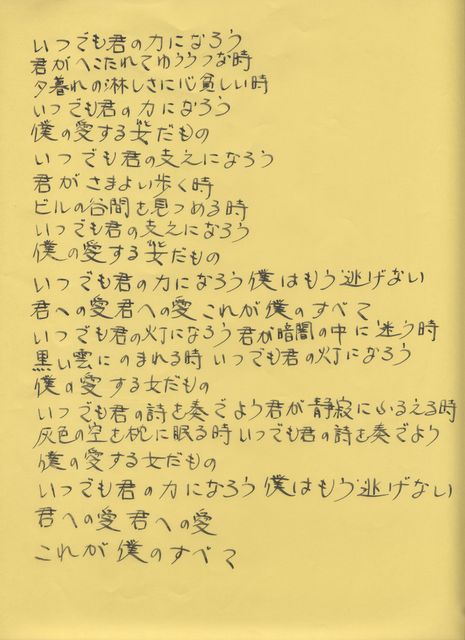 いつでも君の力になろう
君がへこたれてゆううつな時
夕暮れの淋しさに心貧しい時
いつでも君の力になろう
僕の愛する女だもの
いつでも君の支えになろう
君がさまよい歩く時
ビルの谷間を見つめる時
いつでも君の支えになろう
僕の愛する女だもの
いつでも君の力になろう僕はもう逃げない
君への愛君への愛これが僕のすべて
いつでも君の灯になろう君が暗闇の中に迷う時
黒い雲にのまれる時いつでも君の灯になろう
僕の愛する女だもの
いつでも君の詩を奏でよう君が静寂にふるえる時
灰色の空を枕に眠る時いつでも君の詩を奏でよう
僕の愛する女だもの
いつでも君の力になろう僕はもう逃げない
君への愛君への愛
これが僕のすべて